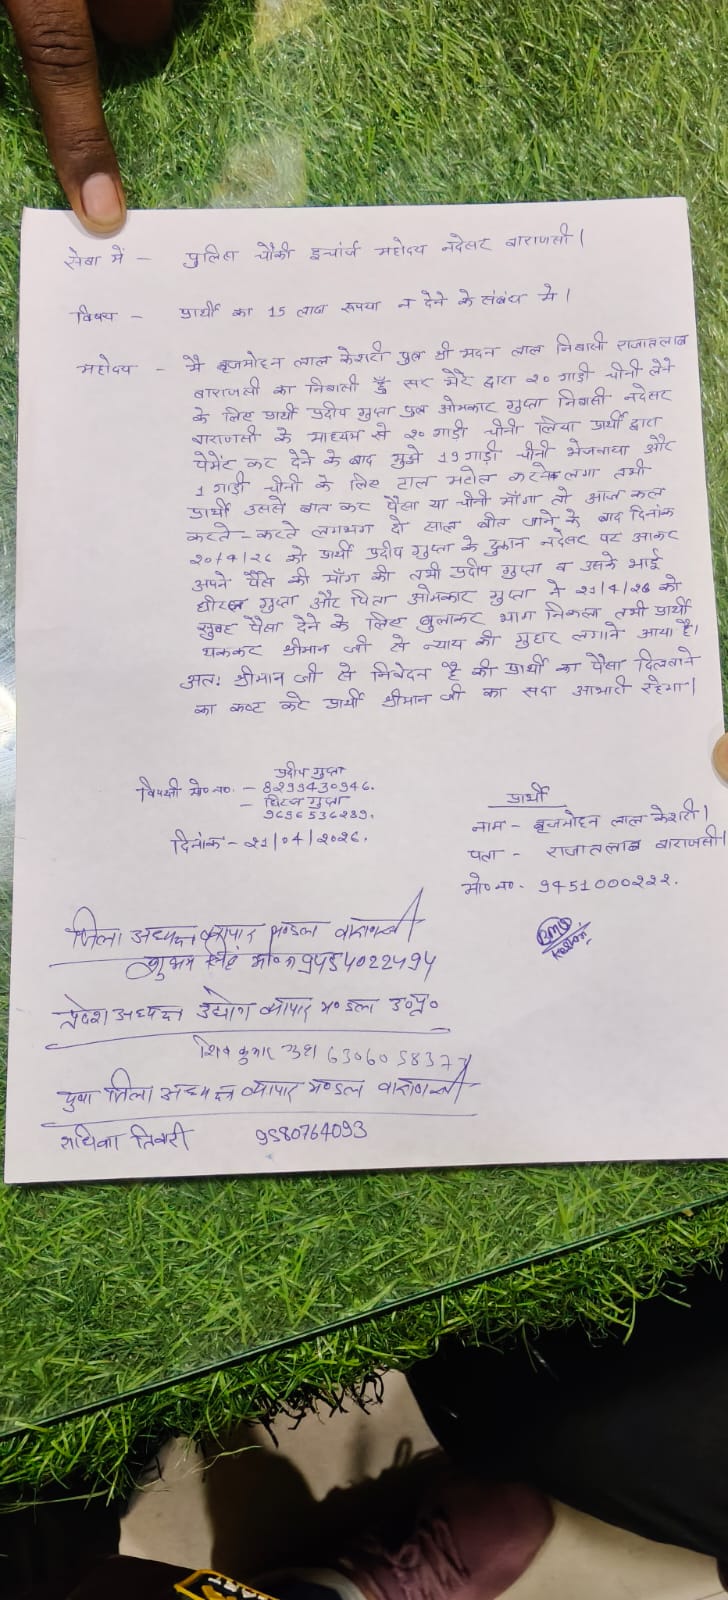 सेवा में – पुलिस चौकी इचांर्ज महोदय नदेसर बाराणसी।
विषय – प्रार्थी का 15 लाख रूपया न देने के संबंध मे।
महोदय – मै बृजमोहन लाल केशरी पुत्र श्री मदन लाल निवासी राजातलाब
बाराणसी का निवासी हूँ सर मेरे द्वारा २० गाड़ी चीनी लेने
के लिए प्रार्थी प्रदीप गुप्ता पुत्र ओमकार गुप्ता निवासी नदेसर
बाराणसी के माध्यम से २० गाड़ी चीनी लिया प्रार्थी द्वारा
पेमेंट कर देने के बाद मुझे 19 गाड़ी चीनी भेजवाया और
1 गाड़ी चीनी के लिए टाल मटोल करने लगा तभी
प्रार्थी उससे बात कर पैसा या चीनी माँगा तो आज कल
करते-करते लगभग दो साल बीत जाने के बाद दिनांक
20/4/26 को प्रार्थी प्रदीप गुप्ता के दुकान नदेसर पर आकर
अपने पैसे की माँग की तभी प्रदीप गुप्ता व उसके भाई
धीरज गुप्ता और पिता ओमकार गुप्ता ने 21/4/26 को
सुबह पैसा देने के लिए बुलाकर भाग निकला तभी प्रार्थी
थककर श्रीमान जी से न्याय की गुहार लगाने आया है।
अतः श्रीमान जी से निवेदन है की प्रार्थी का पैसा दिलवाने
का कष्ट करे प्रार्थी श्रीमान जी का सदा आभारी रहेगा।
प्रदीप गुप्ता
विपक्षी मो० न०. – 8299430946.
– धिरज गुप्ता
9696536289.
दिनांक – 21/04/2026.
प्रार्थी
नाम – बृजमोहन लाल केशरी।
पता – राजातलाब बाराणसी।
मो० न०. 9451000222.
जिला अध्यक्ष व्यापार मण्डल वाराणसी
शुभम सिंह मो० न 9454022494
प्रदेश अध्यक्ष उद्योग व्यापार मण्डल उ०प्र०
शिव कुमार 6306058377
युवा जिला अध्यक्ष व्यापार मण्डल वाराणसी
राधिका तिवरी 9580764093